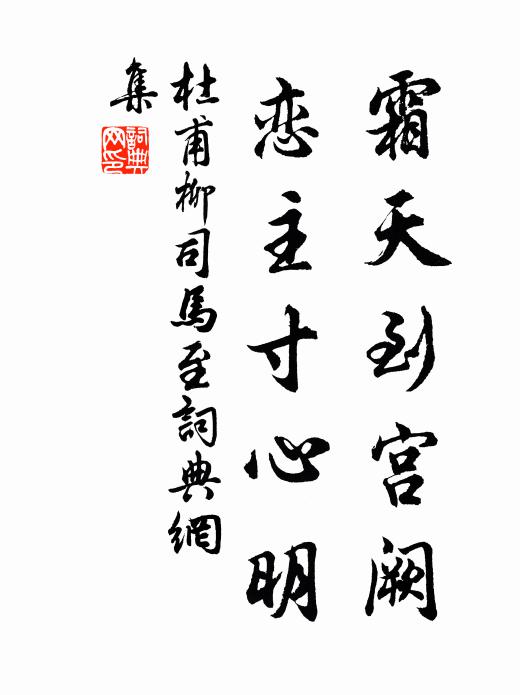 霜天到宫阙
恋主寸心明
杜甫柳司馬至詞典網
集
詞典
网印